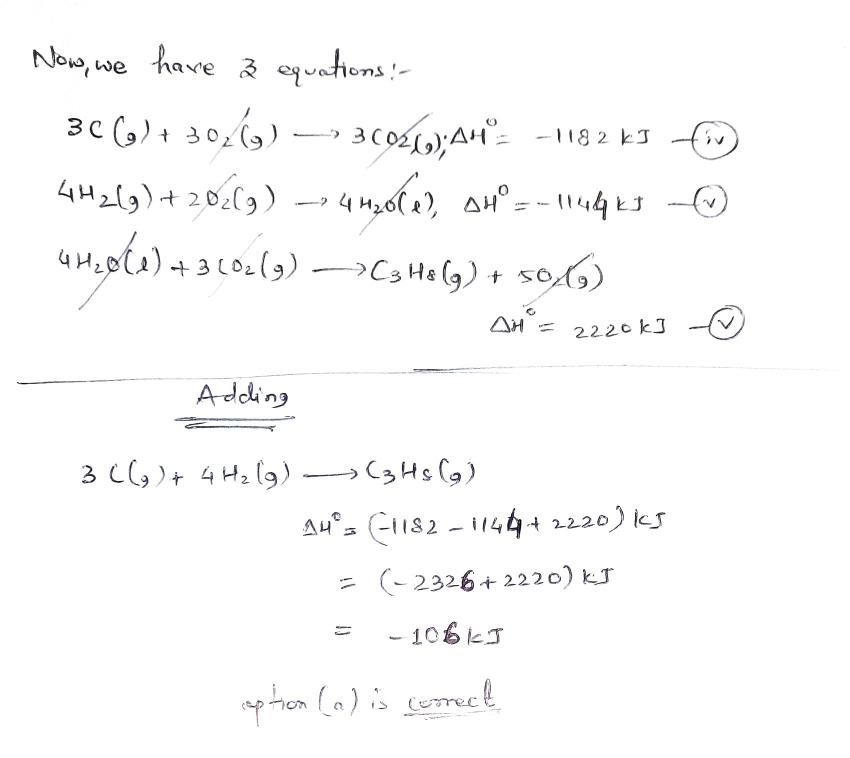 Now, we have 3 equations:-
3C(g) + 3O2(g) → 3CO2(g); ΔH° = -1182 kJ —(iv)
4H2(g) + 2O2(g) → 4H2O(l), ΔH° = -1144 kJ —(v)
4H2O(l) + 3CO2(g) → C3H8(g) + 5O2(g)
ΔH° = 2220 kJ —(v)
Adding
3C(g) + 4H2(g) → C3H8(g)
ΔH° = (-1182 - 1144 + 2220) kJ
= (-2326 + 2220) kJ
= -106 kJ
option (a) is correct